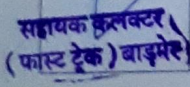 सहायक कलक्टर,
(फास्ट ट्रेक) बाड़मेर